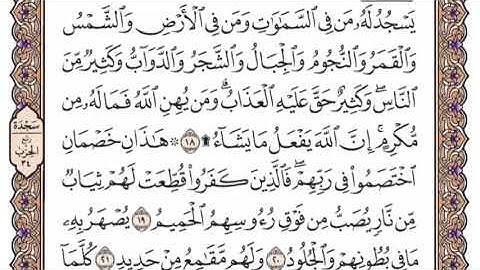 يَسْجُدُ لَهُۥ مَن فِى ٱلسَّمَٰوَٰتِ وَمَن فِى ٱلْأَرْضِ وَٱلشَّمْسُ
وَٱلْقَمَرُ وَٱلنُّجُومُ وَٱلْجِبَالُ وَٱلشَّجَرُ وَٱلدَّوَآبُّ وَكَثِيرٌ مِّنَ
ٱلنَّاسِ ۖ وَكَثِيرٌ حَقَّ عَلَيْهِ ٱلْعَذَابُ ۗ وَمَن يُهِنِ ٱللَّهُ فَمَا لَهُۥ مِن
مُّكْرِمٍ ۚ إِنَّ ٱللَّهَ يَفْعَلُ مَا يَشَآءُ ۩ ١٨ ۞ هَٰذَانِ خَصْمَانِ
ٱخْتَصَمُوا۟ فِى رَبِّهِمْ ۖ فَٱلَّذِينَ كَفَرُوا۟ قُطِّعَتْ لَهُمْ ثِيَابٌ
مِّن نَّارٍ يُصَبُّ مِن فَوْقِ رُءُوسِهِمُ ٱلْحَمِيمُ ١٩ يُصْهَرُ بِهِۦ
مَا فِى بُطُونِهِمْ وَٱلْجُلُودُ ٢٠ وَلَهُم مَّقَٰمِعُ مِنْ حَدِيدٍ ٢١ كُلَّمَآ
سَجْدَة
رُبع
الحزب
٣٤